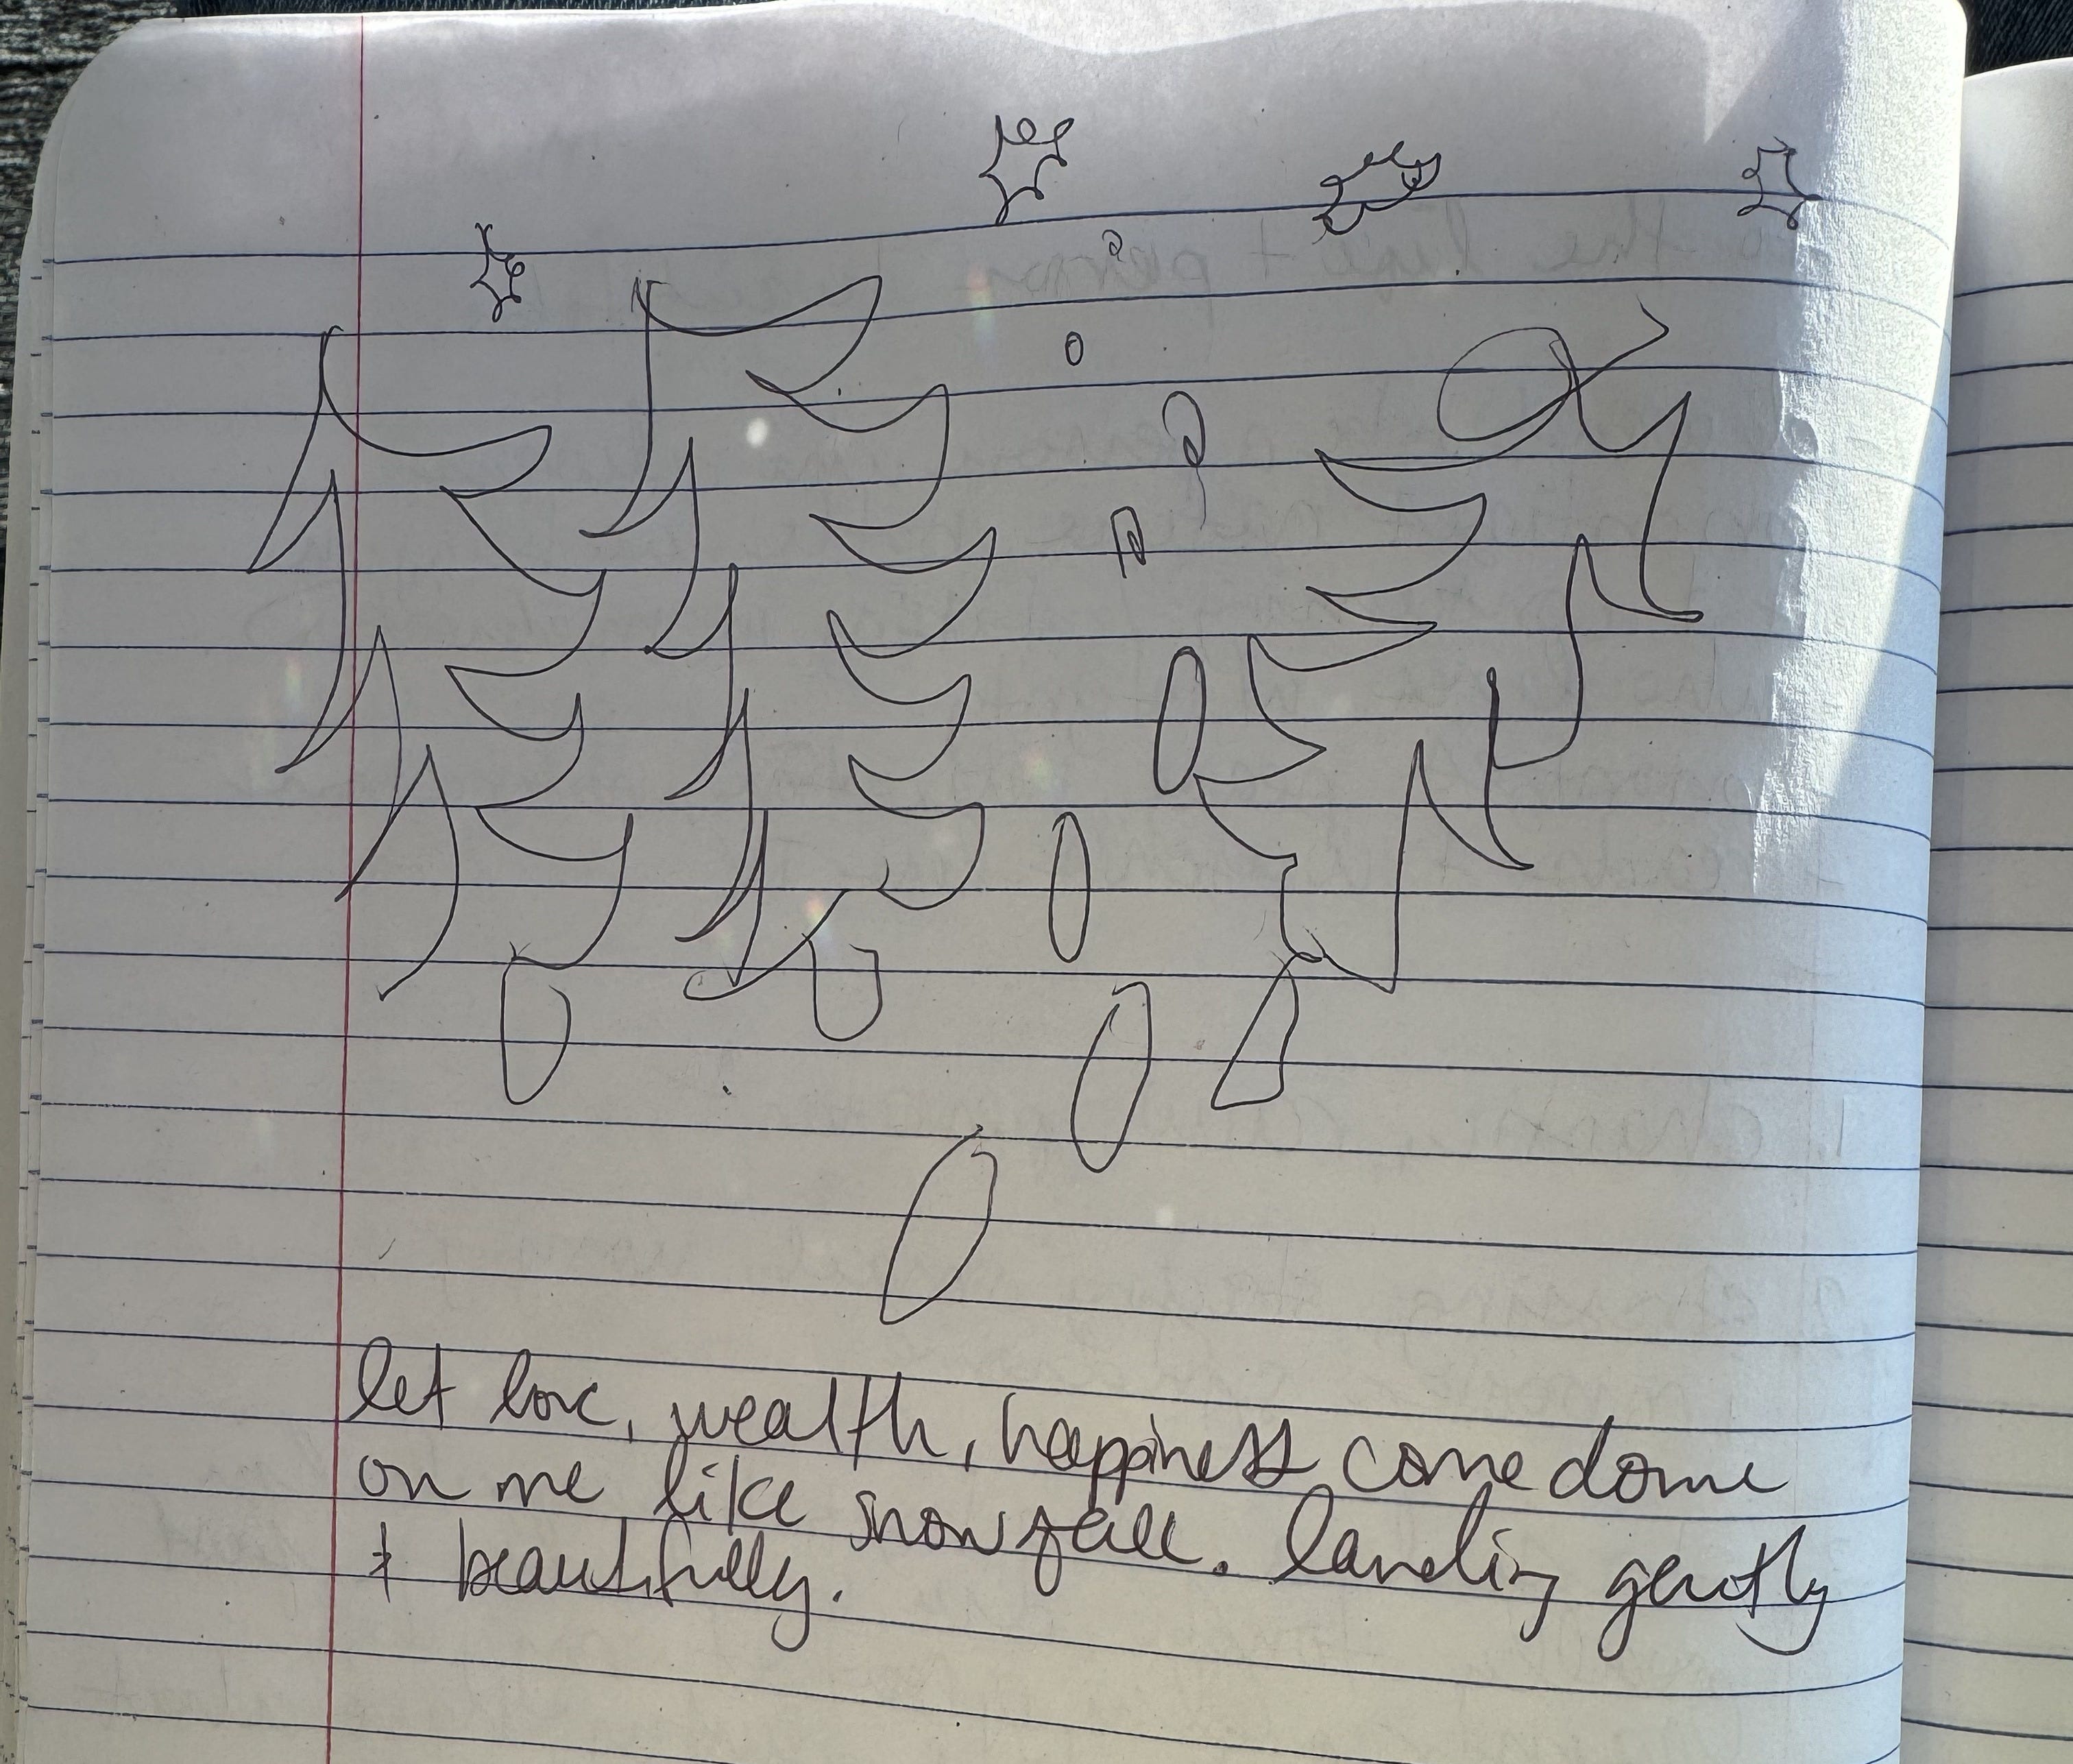 let love, wealth, happiness come dome
on me like snowfall. landing gently
+ beautifully.